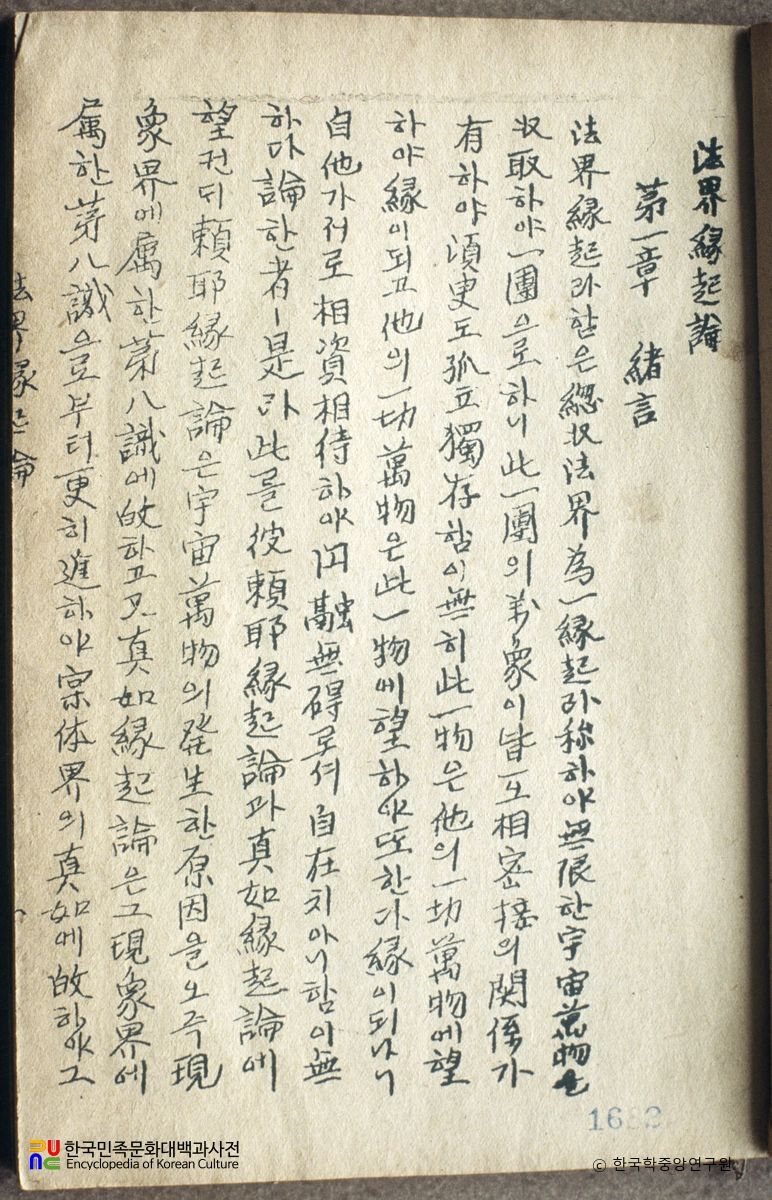 法界緣起論
第一章 緖言
法界緣起라함은總收法界爲一緣起라称하야無限한宇宙萬物을
収取하야一團으로하니此一團의万象이皆互相密接의関係가
有하야湏臾도孤立獨存함이無히此一物은他의一切萬物에望
하야緣이되고他의一切萬物은此一物에望하야또한다緣이되나니
自他가저로相資相待하야円融無碍로셔自在치아니함이無
하다論한者ㅣ是라此를彼頼耶緣起論과真如緣起論에
望컨디頼耶緣起論은宇宙萬物의発生한原因을오즉現
象界에属한第八識에故하고又真如緣起論은그現象界에
属한第八識으로부터更히進하야実体界의真如에故하야그
法界緣起論
한국민족문화대백과사전
Encyclopedia of Korean Culture
© 한국학중앙연구원